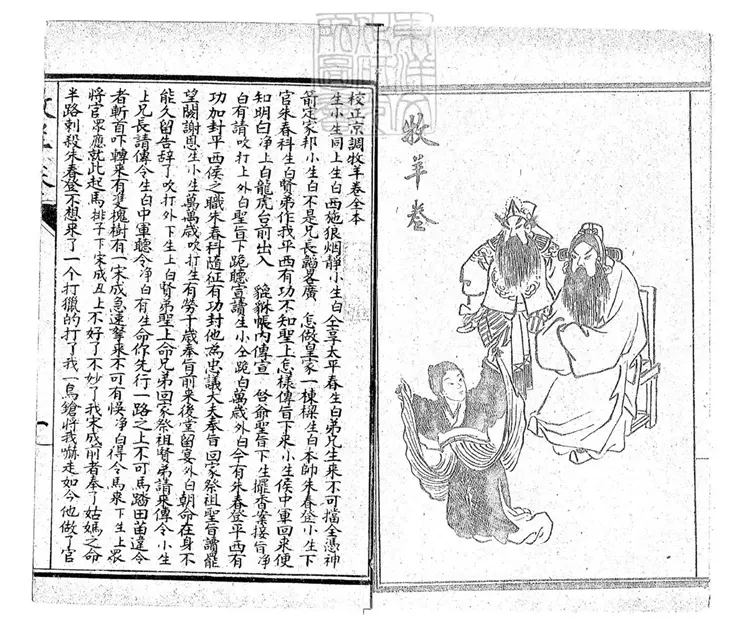 牧羊卷
校正京調牧羊卷全本
生小生同上生白西施狼烟靜小生白仝享太平春生白弟兄生來不可擋全憑神
箭定家邦小生白不是兄長韜畧廣怎做皇家一棟樑生白本帥朱春登小生下
官朱春科生白賢弟作找平西有功不知聖上怎樣傳旨下來小生侯中軍回來便
知明白淨上白龍虎台前出入貔貅帳內傳宣啓爺聖旨下生擺香案接旨淨
白有請吹打上外白聖旨下跪聽宣讀生小仝跪白萬歲外白今有朱春登平西有
功加封平西侯之職朱春科隨征有功封他為忠議大夫奉旨回家祭祖聖旨讀罷
望闕謝恩生小生萬萬歲吹打生有勞千歲奉旨前來後堂留宴外白朝命在身不
能久留告辞了吹打外下生上白賢弟聖上命兄弟回家祭祖賢弟請來傳令小生
上兄長請傳令生白中軍聽令淨白有生命你先行一路之上不可馬踏田苗違令
者斬首吓轉來有雙槐樹有一宋成急速拏來不可有悮淨白得令馬來下生上眾
將官眾應就此起馬排子下宋成丑上不好了不妙了我宋成前者奉了姑媽之命
半路刺殺朱春登不想來了一个打獵的打了我一鳥鎗將我嚇走如今他做了官